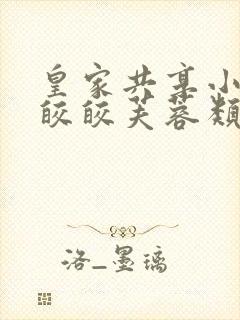 皇家共享小
皎皎芙蓉類
洛_墨璃